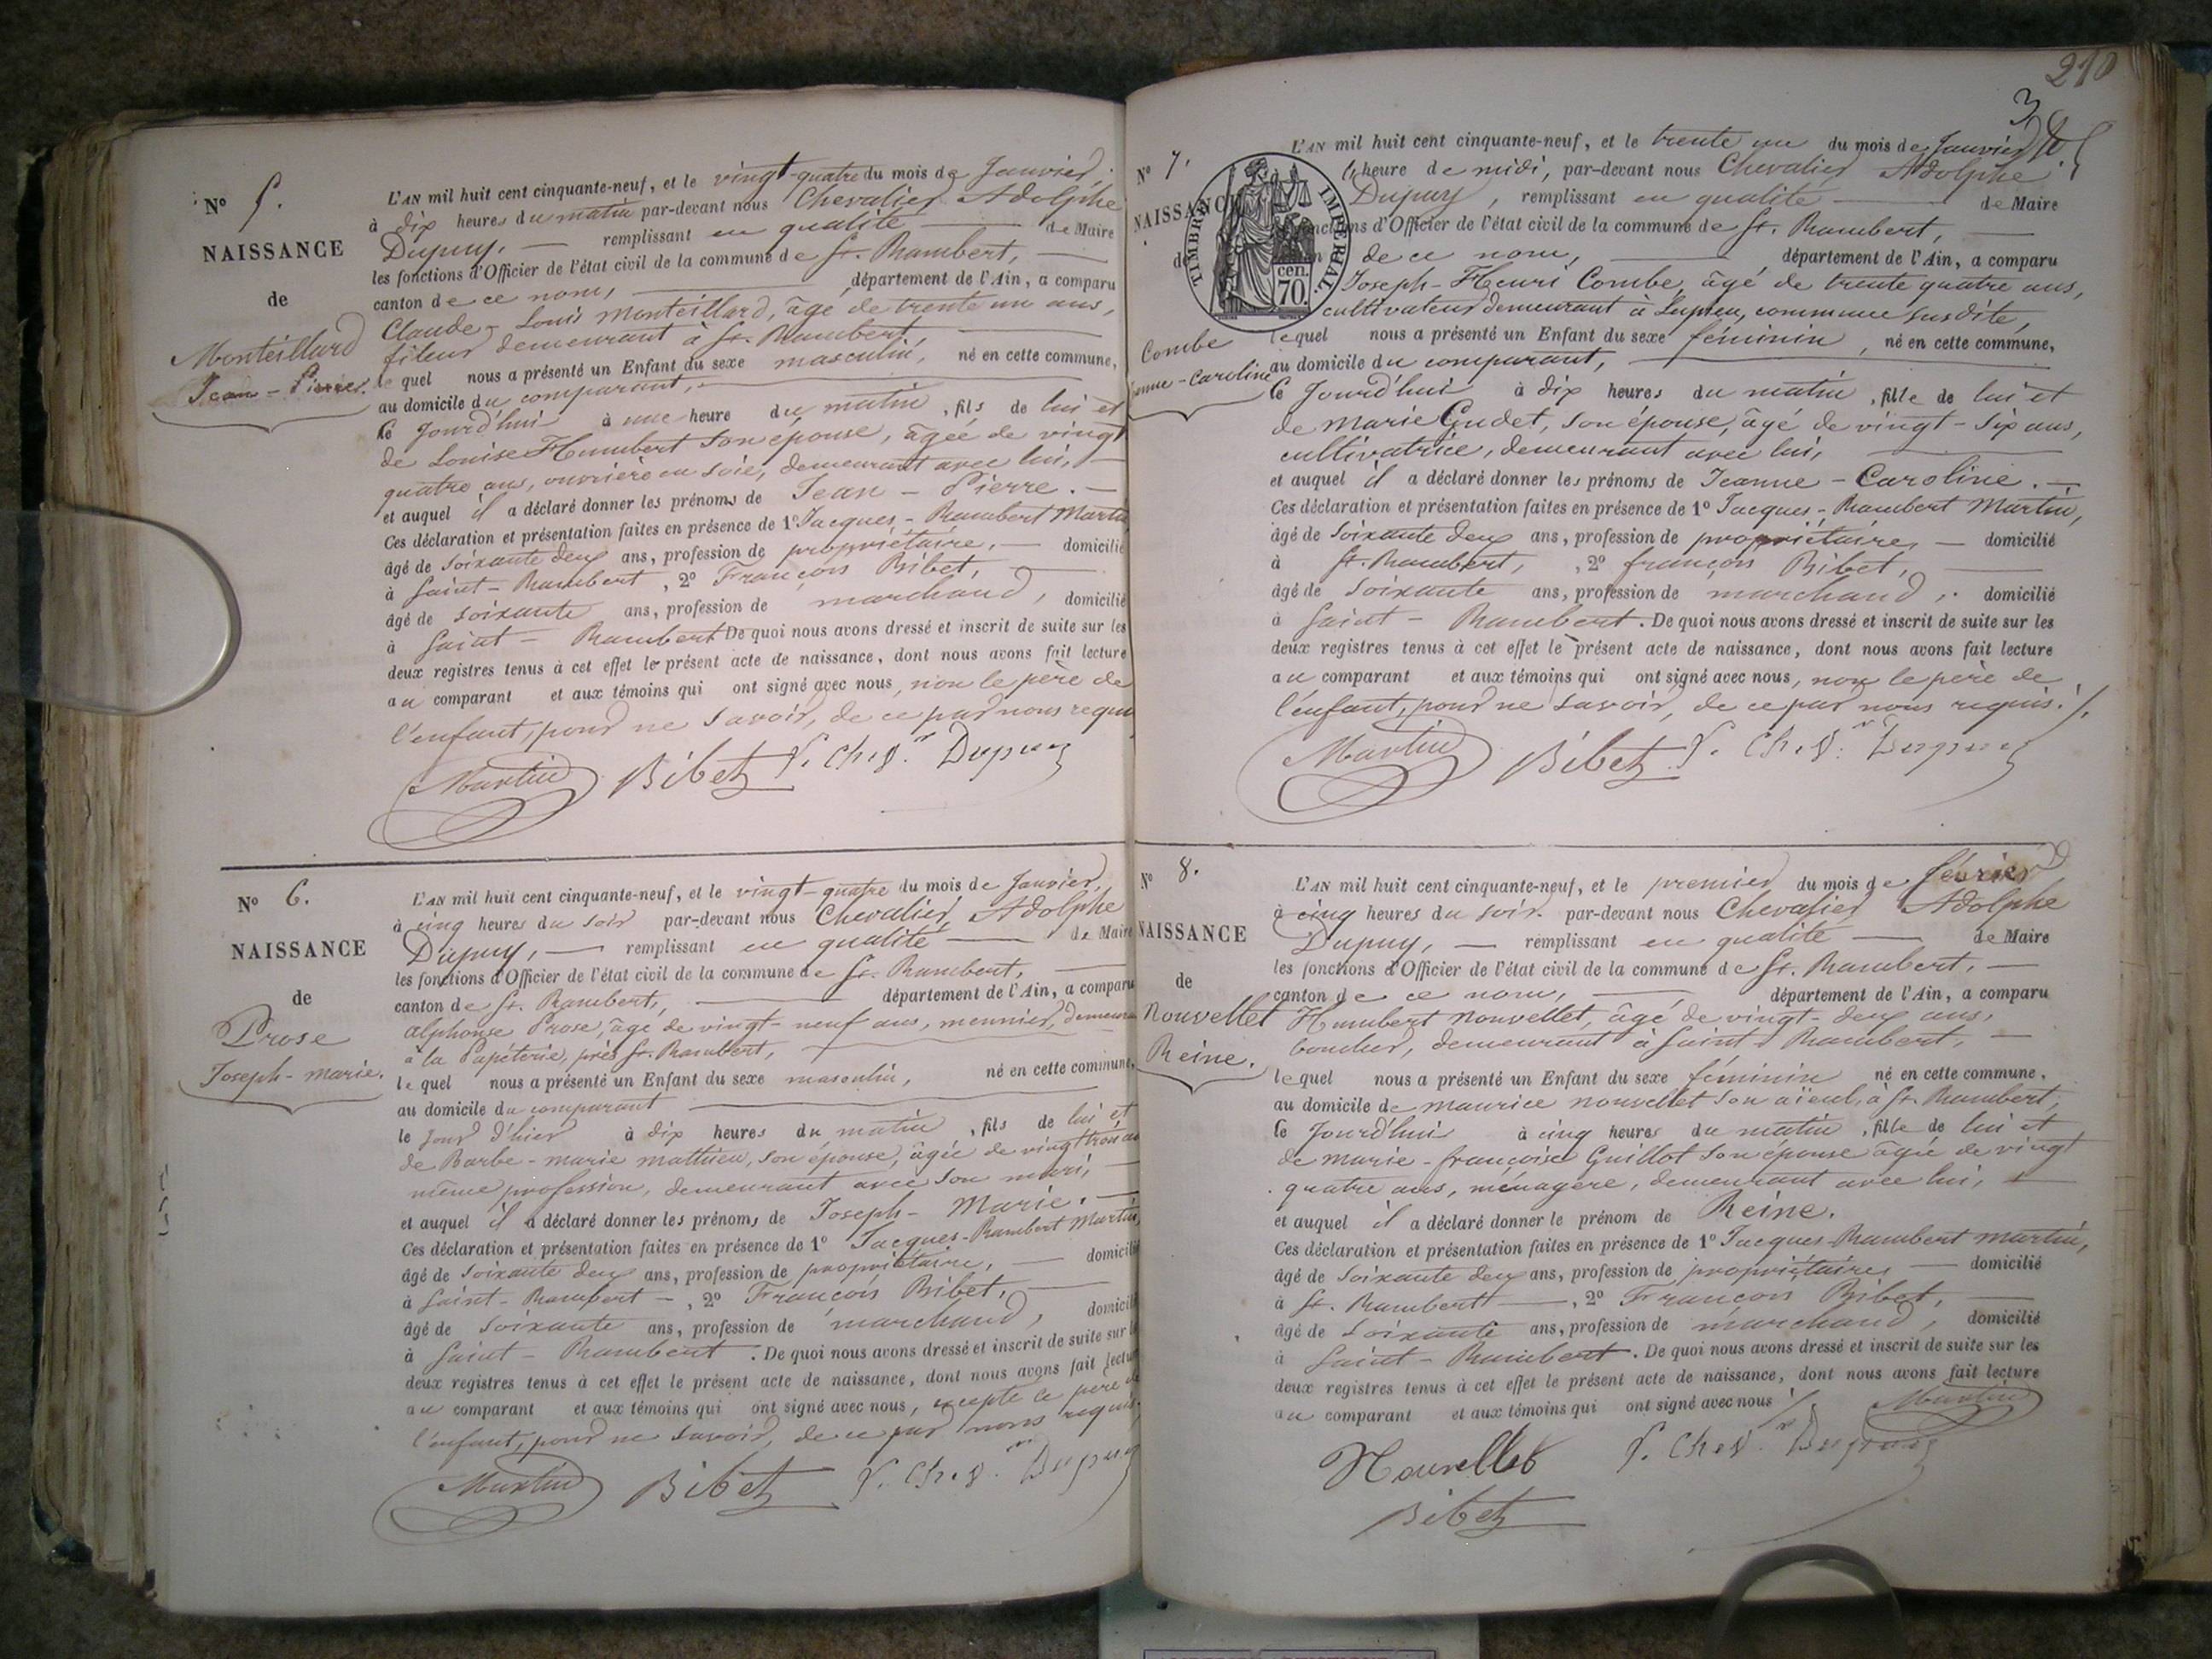 N° 5.
NAISSANCE
de
Monteillard
Jean-Pierre.
L'AN mil huit cent cinquante-neuf, et le vingt-quatre du mois de Janvier,
à dix heures du matin par-devant nous Chevalier Adolphe
Dupuy, remplissant en qualité de Maire
les fonctions d'Officier de l'état civil de la commune de St. Rambert,
canton de ce nom, département de l'Ain, a comparu
Claude-Louis Monteillard, âgé de trente un ans,
fileur demeurant à St. Rambert,
lequel nous a présenté un Enfant du sexe masculin, né en cette commune,
au domicile du comparant,
ce Jourd'hui à une heure du matin, fils de lui et
de Louise Humbert son épouse, âgée de vingt
quatre ans, ouvrière en soie, demeurant avec lui,
et auquel il a déclaré donner les prénoms de Jean-Pierre.
Ces déclaration et présentation faites en présence de 1° Jacques-Rambert Martin
âgé de soixante deux ans, profession de propriétaire, domicilié
à Saint-Rambert, 2° François Bibet,
âgé de soixante ans, profession de marchand, domicilié
à Saint-Rambert De quoi nous avons dressé et inscrit de suite sur les
deux registres tenus à cet effet le présent acte de naissance, dont nous avons fait lecture
au comparant et aux témoins qui ont signé avec nous, non le père de
l'enfant, pour ne savoir, de ce par nous requis
Martin Bibet Chev. Dupuy
N° 6.
NAISSANCE
de
Prose
Joseph-marie.
L'AN mil huit cent cinquante-neuf, et le vingt-quatre du mois de Janvier,
à cinq heures du soir par-devant nous Chevalier Adolphe
Dupuy, remplissant en qualité de Maire
les fonctions d'Officier de l'état civil de la commune de St. Rambert,
canton de St. Rambert, département de l'Ain, a comparu
alphonse Prose, âgé de vingt-neuf ans, meunier, demeurant
à la Papéterie, près St. Rambert,
lequel nous a présenté un Enfant du sexe masculin, né en cette commune,
au domicile du comparant
le jour d'hier à dix heures du matin, fils de lui et
de Barbe-marie mathieu, son épouse, âgée de vingt trois ans
même profession, demeurant avec son mari,
et auquel il a déclaré donner les prénoms de Joseph-Marie.
Ces déclaration et présentation faites en présence de 1° Jacques-Rambert Martin
âgé de soixante deux ans, profession de propriétaire, domicilié
à Saint-Rambert, 2° François Bibet,
âgé de soixante ans, profession de marchand, domicilié
à Saint-Rambert. De quoi nous avons dressé et inscrit de suite sur les
deux registres tenus à cet effet le présent acte de naissance, dont nous avons fait lecture
au comparant et aux témoins qui ont signé avec nous, excepté le père de
l'enfant, pour ne savoir, de ce par nous requis,
Martin Bibet Chev. Dupuy
210
3
N° 7.
NAISSANCE
de
Combe
Jeanne-Caroline
TIMBRE IMPERIAL
70 cen.
L'AN mil huit cent cinquante-neuf, et le trente un du mois de Janvier
heure de midi, par-devant nous Chevalier Adolphe
Dupuy, remplissant en qualité de Maire
fonctions d'Officier de l'état civil de la commune de St. Rambert,
de ce nom, département de l'Ain, a comparu
Joseph-Henri Combe, âgé de trente quatre ans,
cultivateur demeurant à Lupieu, commune susdite,
lequel nous a présenté un Enfant du sexe féminin, né en cette commune,
au domicile du comparant,
ce Jourd'hui à dix heures du matin, fille de lui et
de marie Gudet, son épouse, âgé de vingt-six ans,
cultivatrice, demeurant avec lui,
et auquel il a déclaré donner les prénoms de Jeanne-Caroline.
Ces déclaration et présentation faites en présence de 1° Jacques-Rambert Martin,
âgé de soixante deux ans, profession de propriétaire, domicilié
à St. Rambert, 2° françois Bibet,
âgé de soixante ans, profession de marchand, domicilié
à Saint-Rambert. De quoi nous avons dressé et inscrit de suite sur les
deux registres tenus à cet effet le présent acte de naissance, dont nous avons fait lecture
au comparant et aux témoins qui ont signé avec nous, non le père de
l'enfant, pour ne savoir, de ce par nous requis./.
Martin Bibet Chev. Dupuy
N° 8.
NAISSANCE
de
Nouvellet
Reine.
L'AN mil huit cent cinquante-neuf, et le premier du mois de février
à cinq heures du soir par-devant nous Chevalier Adolphe
Dupuy, remplissant en qualité de Maire
les fonctions d'Officier de l'état civil de la commune de St. Rambert,
canton de ce nom, département de l'Ain, a comparu
Humbert Nouvellet, âgé de vingt-deux ans,
boucher, demeurant à Saint-Rambert,
lequel nous a présenté un Enfant du sexe féminin né en cette commune,
au domicile de maurice nouvellet son aïeul, à St. Rambert,
ce Jourd'hui à cinq heures du matin, fille de lui et
de marie-françoise Guillot son épouse âgée de vingt
quatre ans, ménagère, demeurant avec lui,
et auquel il a déclaré donner le prénom de Reine.
Ces déclaration et présentation faites en présence de 1° Jacques-Rambert martin,
âgé de soixante deux ans, profession de propriétaire, domicilié
à St. Rambert, 2° François Bibet,
âgé de soixante ans, profession de marchand, domicilié
à Saint-Rambert. De quoi nous avons dressé et inscrit de suite sur les
deux registres tenus à cet effet le présent acte de naissance, dont nous avons fait lecture
au comparant et aux témoins qui ont signé avec nous ./.
Martin
Nouvellet Chev. Dupuy
Bibet